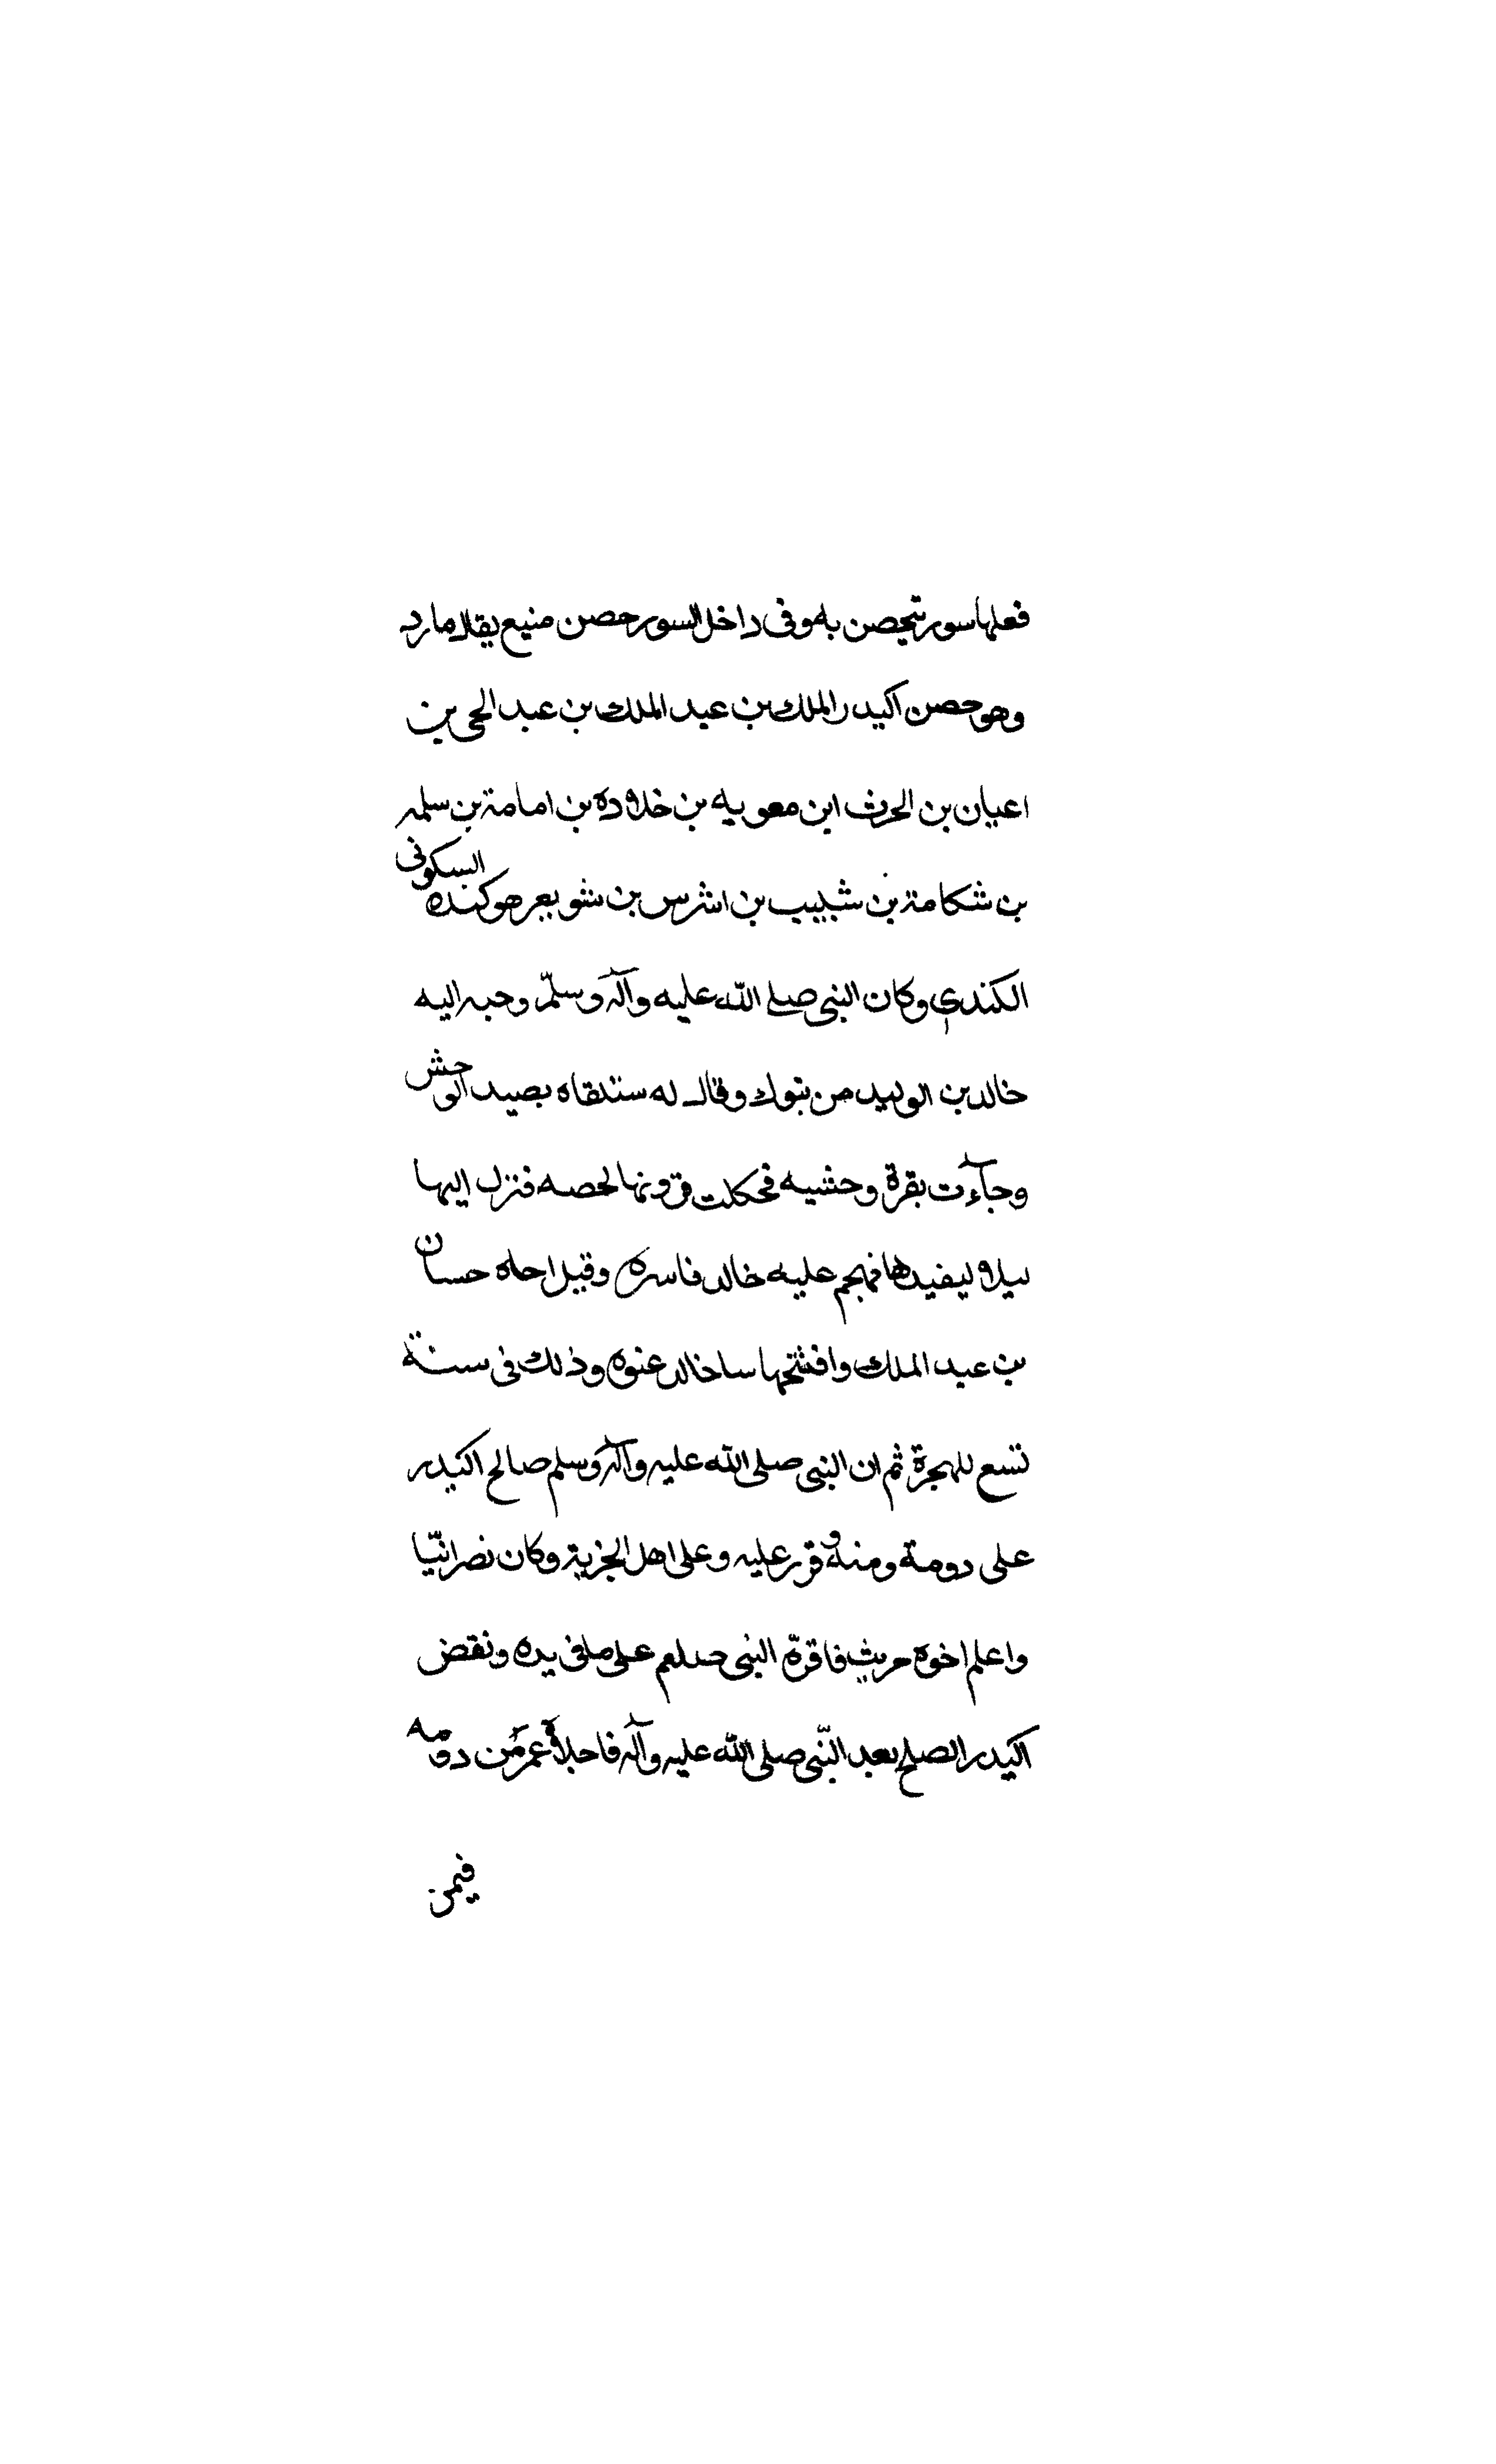 فعليها سور يتحصن به وفى داخل السور حصن منيع يقال مارد
وهو حصن اكيدر الملك بن عبد الملك بن عبد الحى بن
اعيان بن الحرث ابن معويه بن خلاوه بن امامة بن سلمه
بن شكامة بن شبيب بن اشرس بن شو بعر هو كنده السكونى
الكندي وكان النبى صلى الله عليه وآله وسلّم وجه اليه
خالد بن الوليد من تبوك وقال له ستلقاه بصيد الوحش
وجآءت بقرة وحشيه فحكلت قرونها لحصه فنزل اليها
ليلا ليفيدها فهجم عليه خالد فاسره وقيل احاه حسان
بن عبد الملك وافتتحها سا خالد عنوه وذلك فى سنة
تسع للهجرة ثم ان النبى صلى الله عليه وآله وسلم صالح اكيدر
على دومة ومنه وقرر عليه وعلى اهل الجزية وكان نصرانيّا
واعلم اخوه حريث فاقرّة النبى صلعم على ما فى يده ونقض
اكيدر الصلح بعد النّبى صلى الله عليه وآله فاجلاه عمر من دومه
فيمن